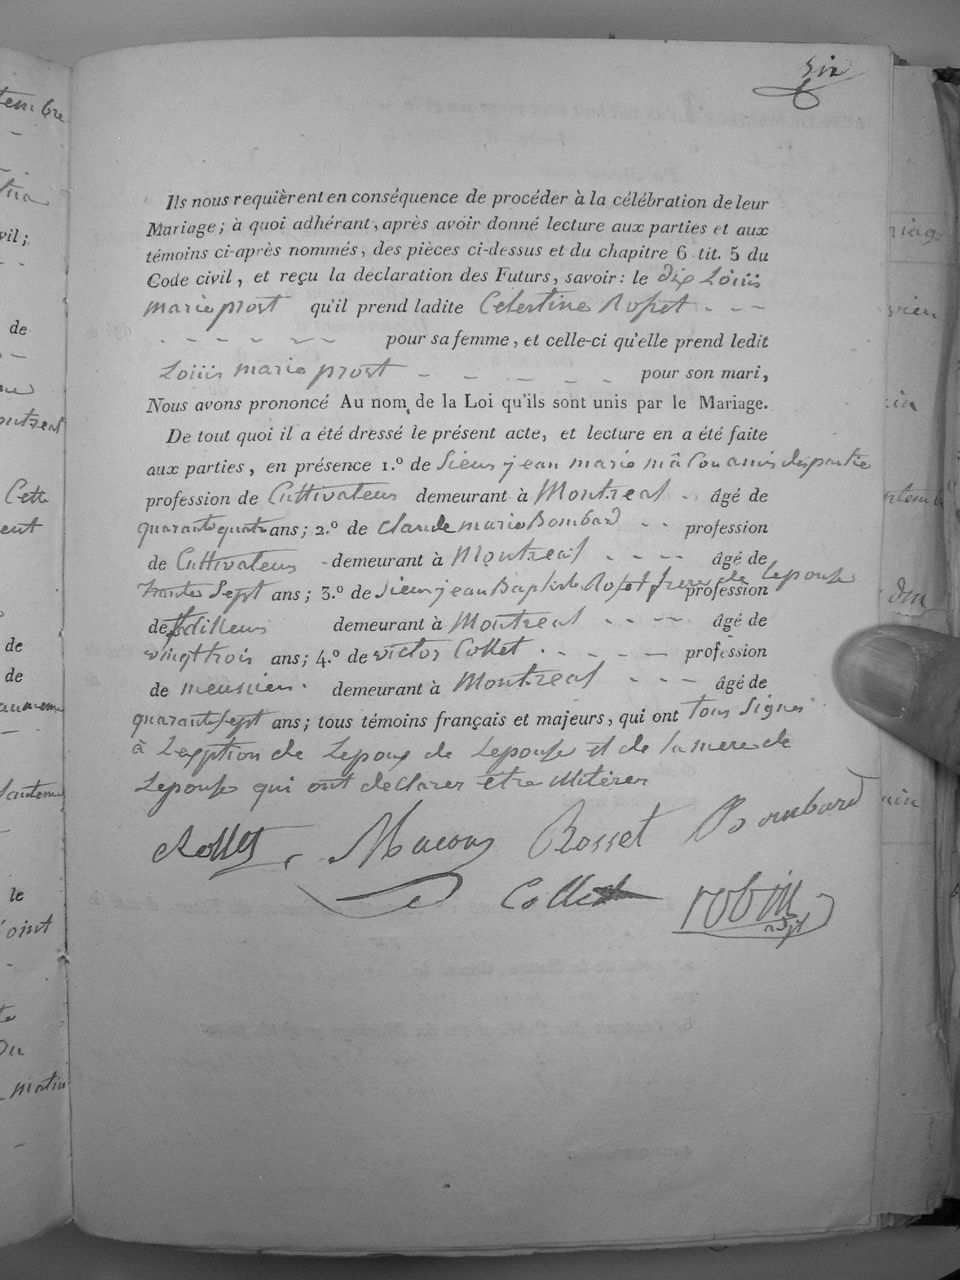 six
Ils nous requièrent en conséquence de procéder à la célébration de leur
Mariage; à quoi adhérant, après avoir donné lecture aux parties et aux
témoins ci-après nommés, des pièces ci-dessus et du chapitre 6 tit. 5 du
Code civil, et reçu la déclaration des Futurs, savoir: le dix Loüis
marie prost qu'il prend ladite Celestine Rosset - - -
- - - - - pour sa femme, et celle-ci qu'elle prend ledit
Loüis marie prost - - - - - - pour son mari,
Nous avons prononcé Au nom de la Loi qu'ils sont unis par le Mariage.
De tout quoi il a été dressé le présent acte, et lecture en a été faite
aux parties, en présence 1.º de Sieur jean marie mâcon amis des partie
profession de Cultivateur demeurant à Montreal - âgé de
quarante quatre ans; 2.º de claude marie Bombard - - profession
de Cultivateur - demeurant à Montreal - - - - âgé de
trente Sept ans; 3.º de Sieur jean Baptiste Rosset frere de Lepouse profession
de demeurant à Montreal - - - - âgé de
vingt trois ans; 4.º de victor Collet - - - - - profession
de meunier demeurant à Montreal - - - âgé de
quarante Sept ans; tous témoins français et majeurs, qui ont tous Signé
à Lexption de Lepoux de Lepouse et de la mere de
Lepouse qui ont declarer etre illiterer
Macon Rosset Bombard
Collet robin
adjt
tembre
vil;
de
Cette
ent
de
de
le
oint
matin